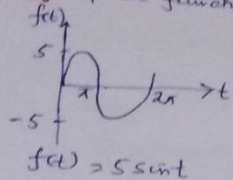 f(t)
5
π
2π
t
-5
f(t) = 5 sin t